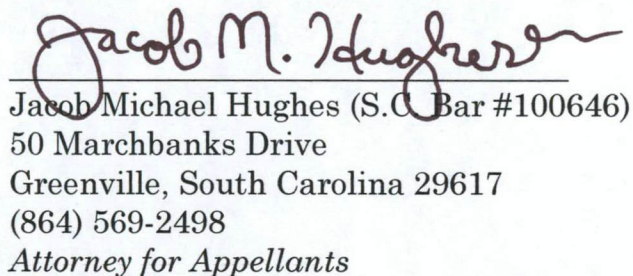 Jacob M. Hughes
Jacob Michael Hughes (S.C. Bar #100646)
50 Marchbanks Drive
Greenville, South Carolina 29617
(864) 569-2498
Attorney for Appellants